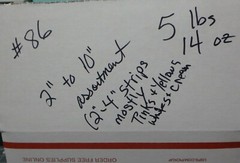 #86
5 lbs
14 oz
2" to 10"
assortment
(2"-4" strips
mostly
Pinks & Yellows
Whites & Cream
ORDER FREE SUPPLIES ONLINE